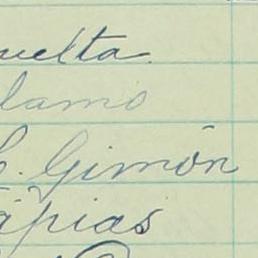 uelta
lamo
C. Gimón
ápias